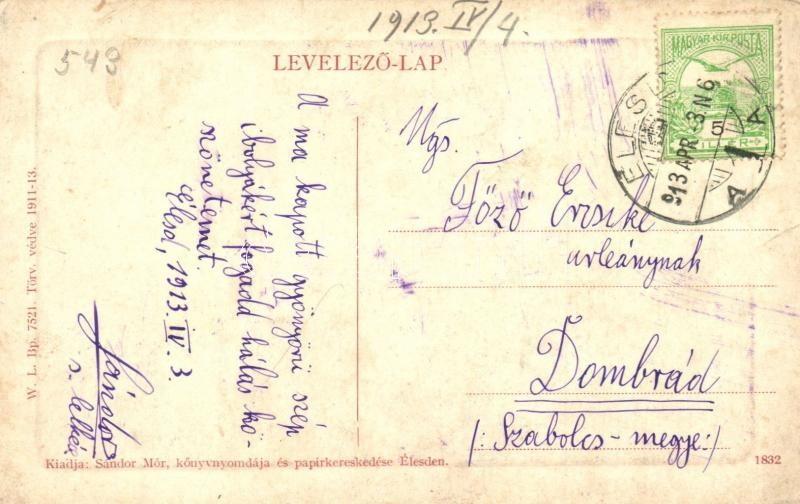 1913. IV/4.
543
LEVELEZŐ-LAP
MAGYAR KIR. POSTA
ÉLESD
913 APR. 3 N6
A 1 A
A ma kapott gyönyörű szép
ibolyákért fogadd hálás kö-
szönetemet.
Élesd, 1913. IV. 3.
Sándor
Ngs.
Főző Erzsike
urleánynak
Dombrád
(: Szabolcs-megye :)
W. L. Bp. 7521. Törv. védve 1911-13.
Kiadja: Sándor Mór, könyvnyomdája és papirkereskedése Élesden.
1832